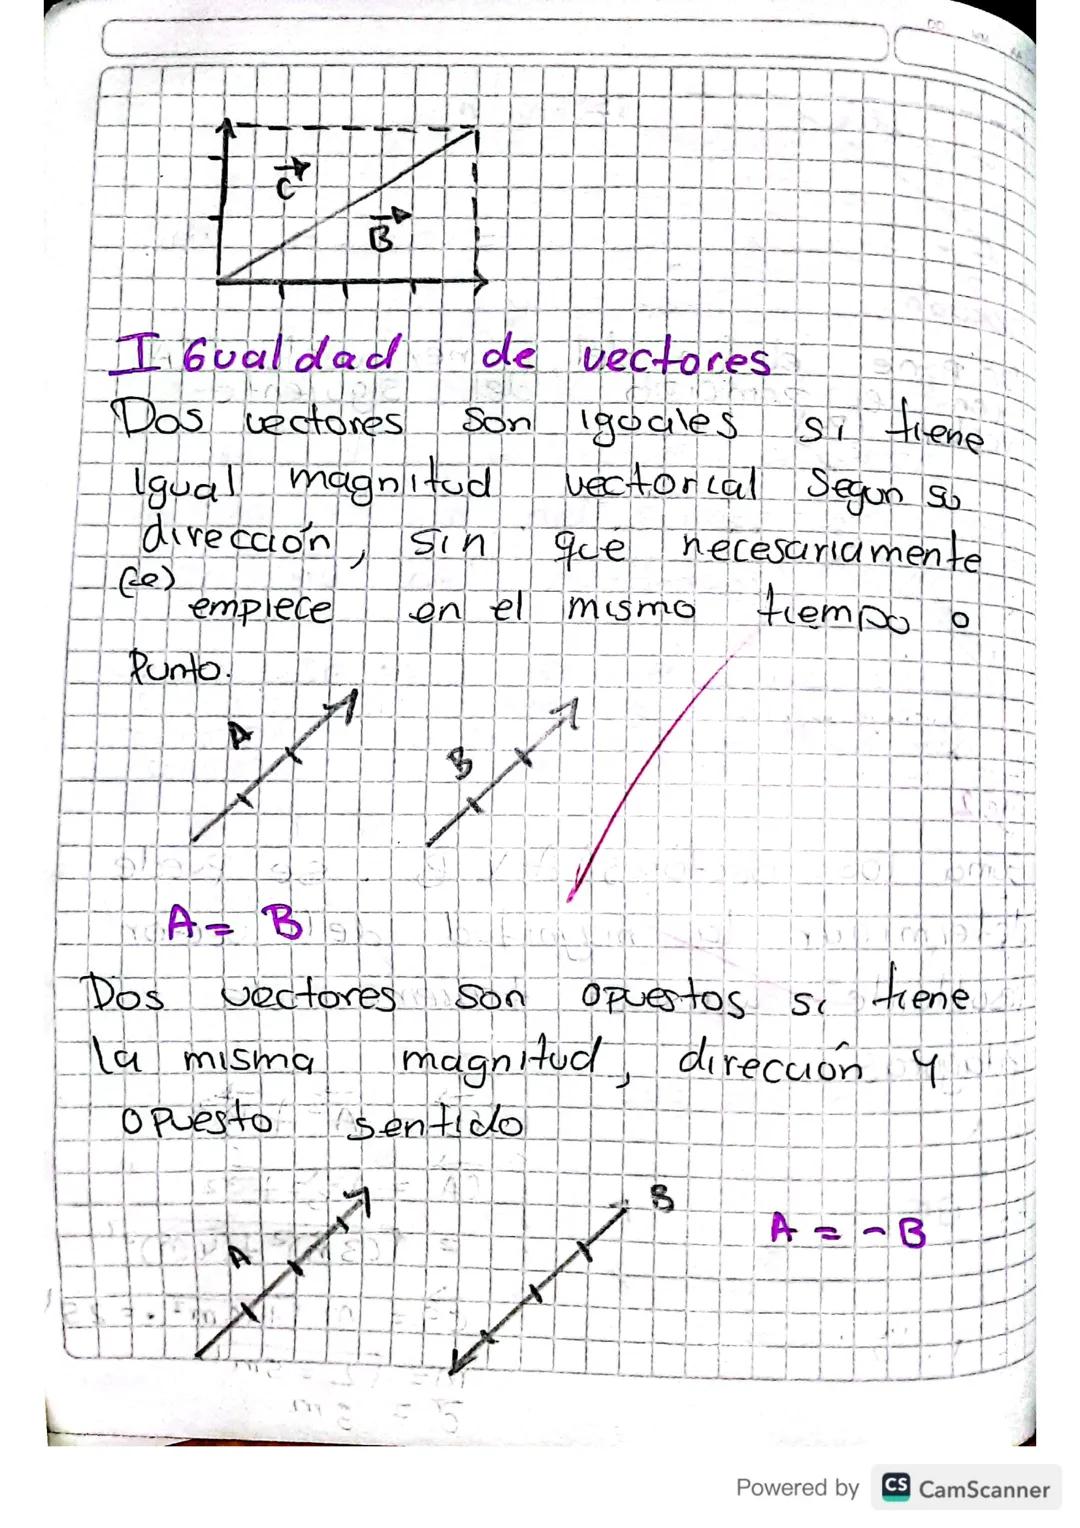 C
B
IGualdad de vectores
Dos vectores son iguales si tiene
Igual magnitud vectorial Segun su
dirección, sin que necesariamente
(se)
empiece en el mismo tiempo o
Punto.
A B
A = B
Dos vectores son opuestos si tiene
la misma magnitud, dirección y
opuesto sentido
A B A = - B
Powered by CS CamScanner